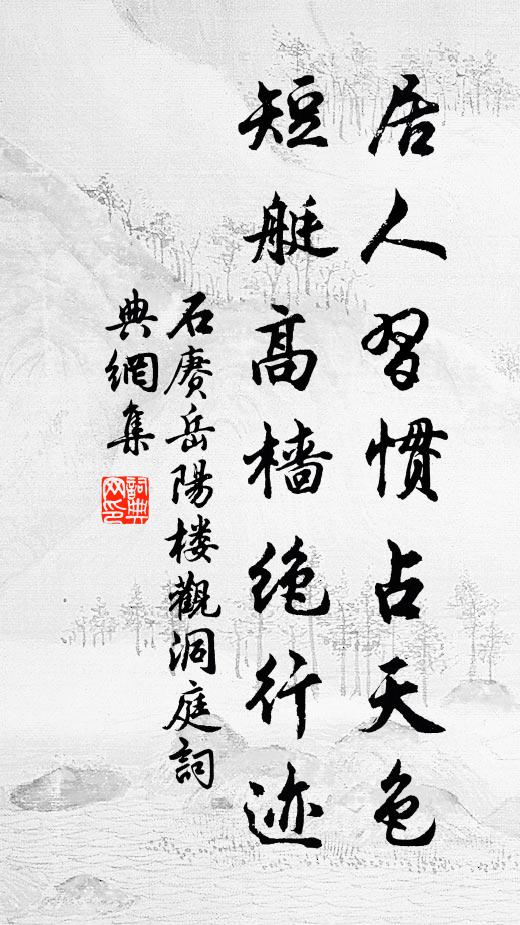 居人習慣占天色
短艇高檣绝行迹
石赓岳陽楼觀洞庭詞
典網集
詞典
网印